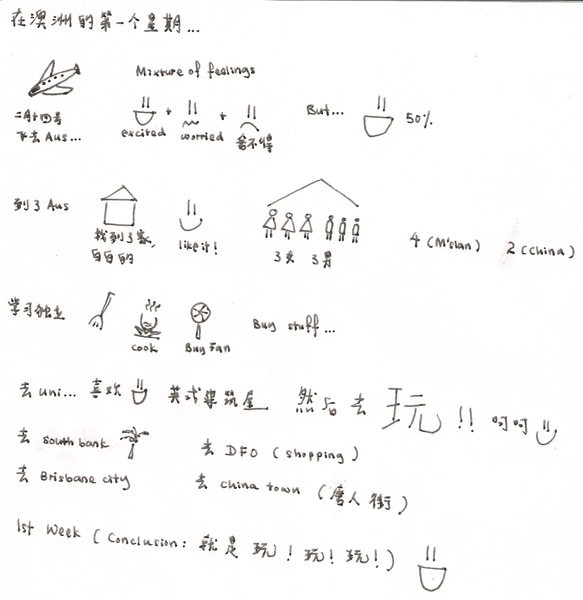 在澳洲的第一个星期...
Mixture of feelings
二月十四号
下去 Aus...
excited + worried + 舍不得
But... 50%
到了 Aus
找到了家,
白白的
like it!
3 女 3 男
4 (M'sian) 2 (China)
学习独立
cook
Buy Fan
Buy stuff...
去 uni... 喜欢 英式建筑屋 然后去 玩!! 呵呵
去 south bank 去 DFO (shopping)
去 Brisbane city 去 china town (唐人街)
1st Week (Conclusion: 就是玩!玩!玩!)